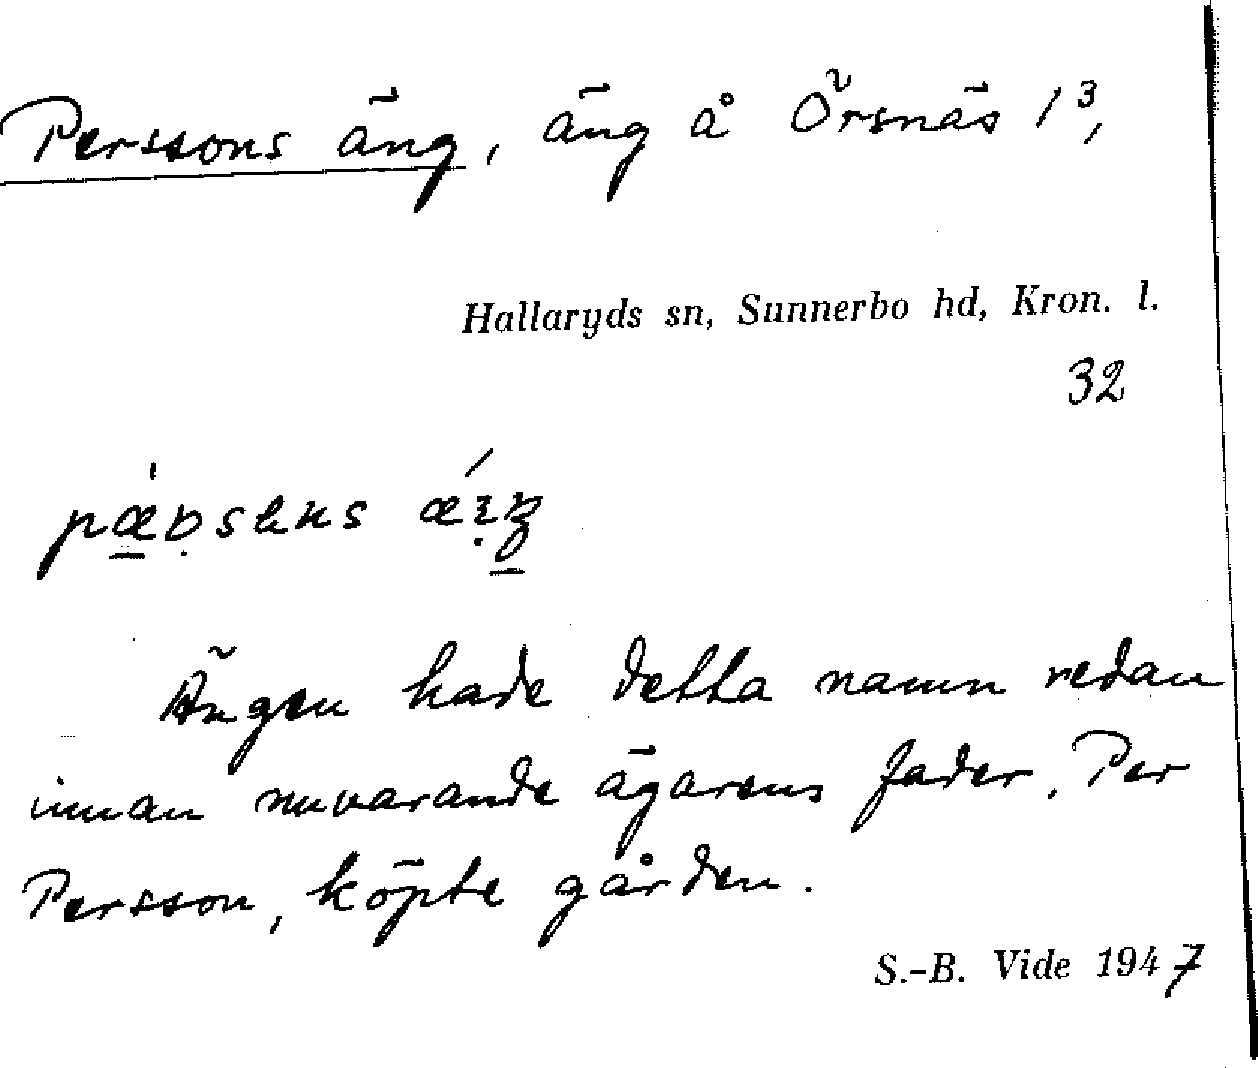 Perssons äng, äng å Örsnäs 1³,
Hallaryds sn, Sunnerbo hd, Kron. l.
32
Ängen hade detta namn redan
innan nuvarande ägarens fader, Per
Persson, köpte gården.
S.-B. Vide 1947